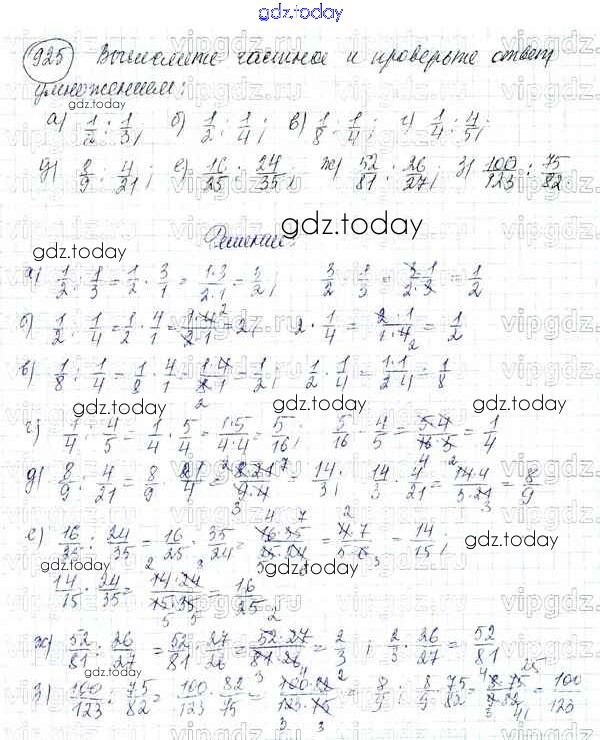 gdz.today
925 Вычислите частное и проверьте ответ
умножением:
gdz.today
а) 1/2 : 1/3; б) 1/2 : 1/4; в) 1/8 : 1/4; г) 1/4 : 4/5;
д) 8/9 : 4/21; е) 16/25 : 24/35; ж) 52/81 : 26/27; з) 100/123 : 75/82.
gdz.today gdz.today
gdz.today
Решение:
gdz.today gdz.today
а) 1/2 : 1/3 = 1/2 · 3/1 = 1·3/2·1 = 3/2; 3/2 · 1/3 = 3·1/2·3 = 1/2
б) 1/2 : 1/4 = 1/2 · 4/1 = 1·4/2·1 = 2; 2 · 1/4 = 2·1/1·4 = 1/2
в) 1/8 : 1/4 = 1/8 · 4/1 = 1·4/8·1 = 1/2; 1/2 · 1/4 = 1·1/2·4 = 1/8
gdz.today gdz.today gdz.today
г) 1/4 : 4/5 = 1/4 · 5/4 = 1·5/4·4 = 5/16; 5/16 · 4/5 = 5·4/16·5 = 1/4
gdz.today
д) 8/9 : 4/21 = 8/9 · 21/4 = 8·21/9·4 = 14/3; 14/3 · 4/21 = 14·4/3·21 = 8/9
е) 16/25 : 24/35 = 16/25 · 35/24 = 16·35/25·24 = 4·7/5·6 = 14/15;
gdz.today gdz.today
14/15 · 24/35 = 14·24/15·35 = 16/25
gdz.today
ж) 52/81 : 26/27 = 52/81 · 27/26 = 52·27/81·26 = 2/3; 2/3 · 26/27 = 52/81
gdz.today gdz.today
з) 100/123 : 75/82 = 100/123 · 82/75 = 100·82/123·75 = 8/9; 8/9 · 75/82 = 8·75/9·82 = 100/123